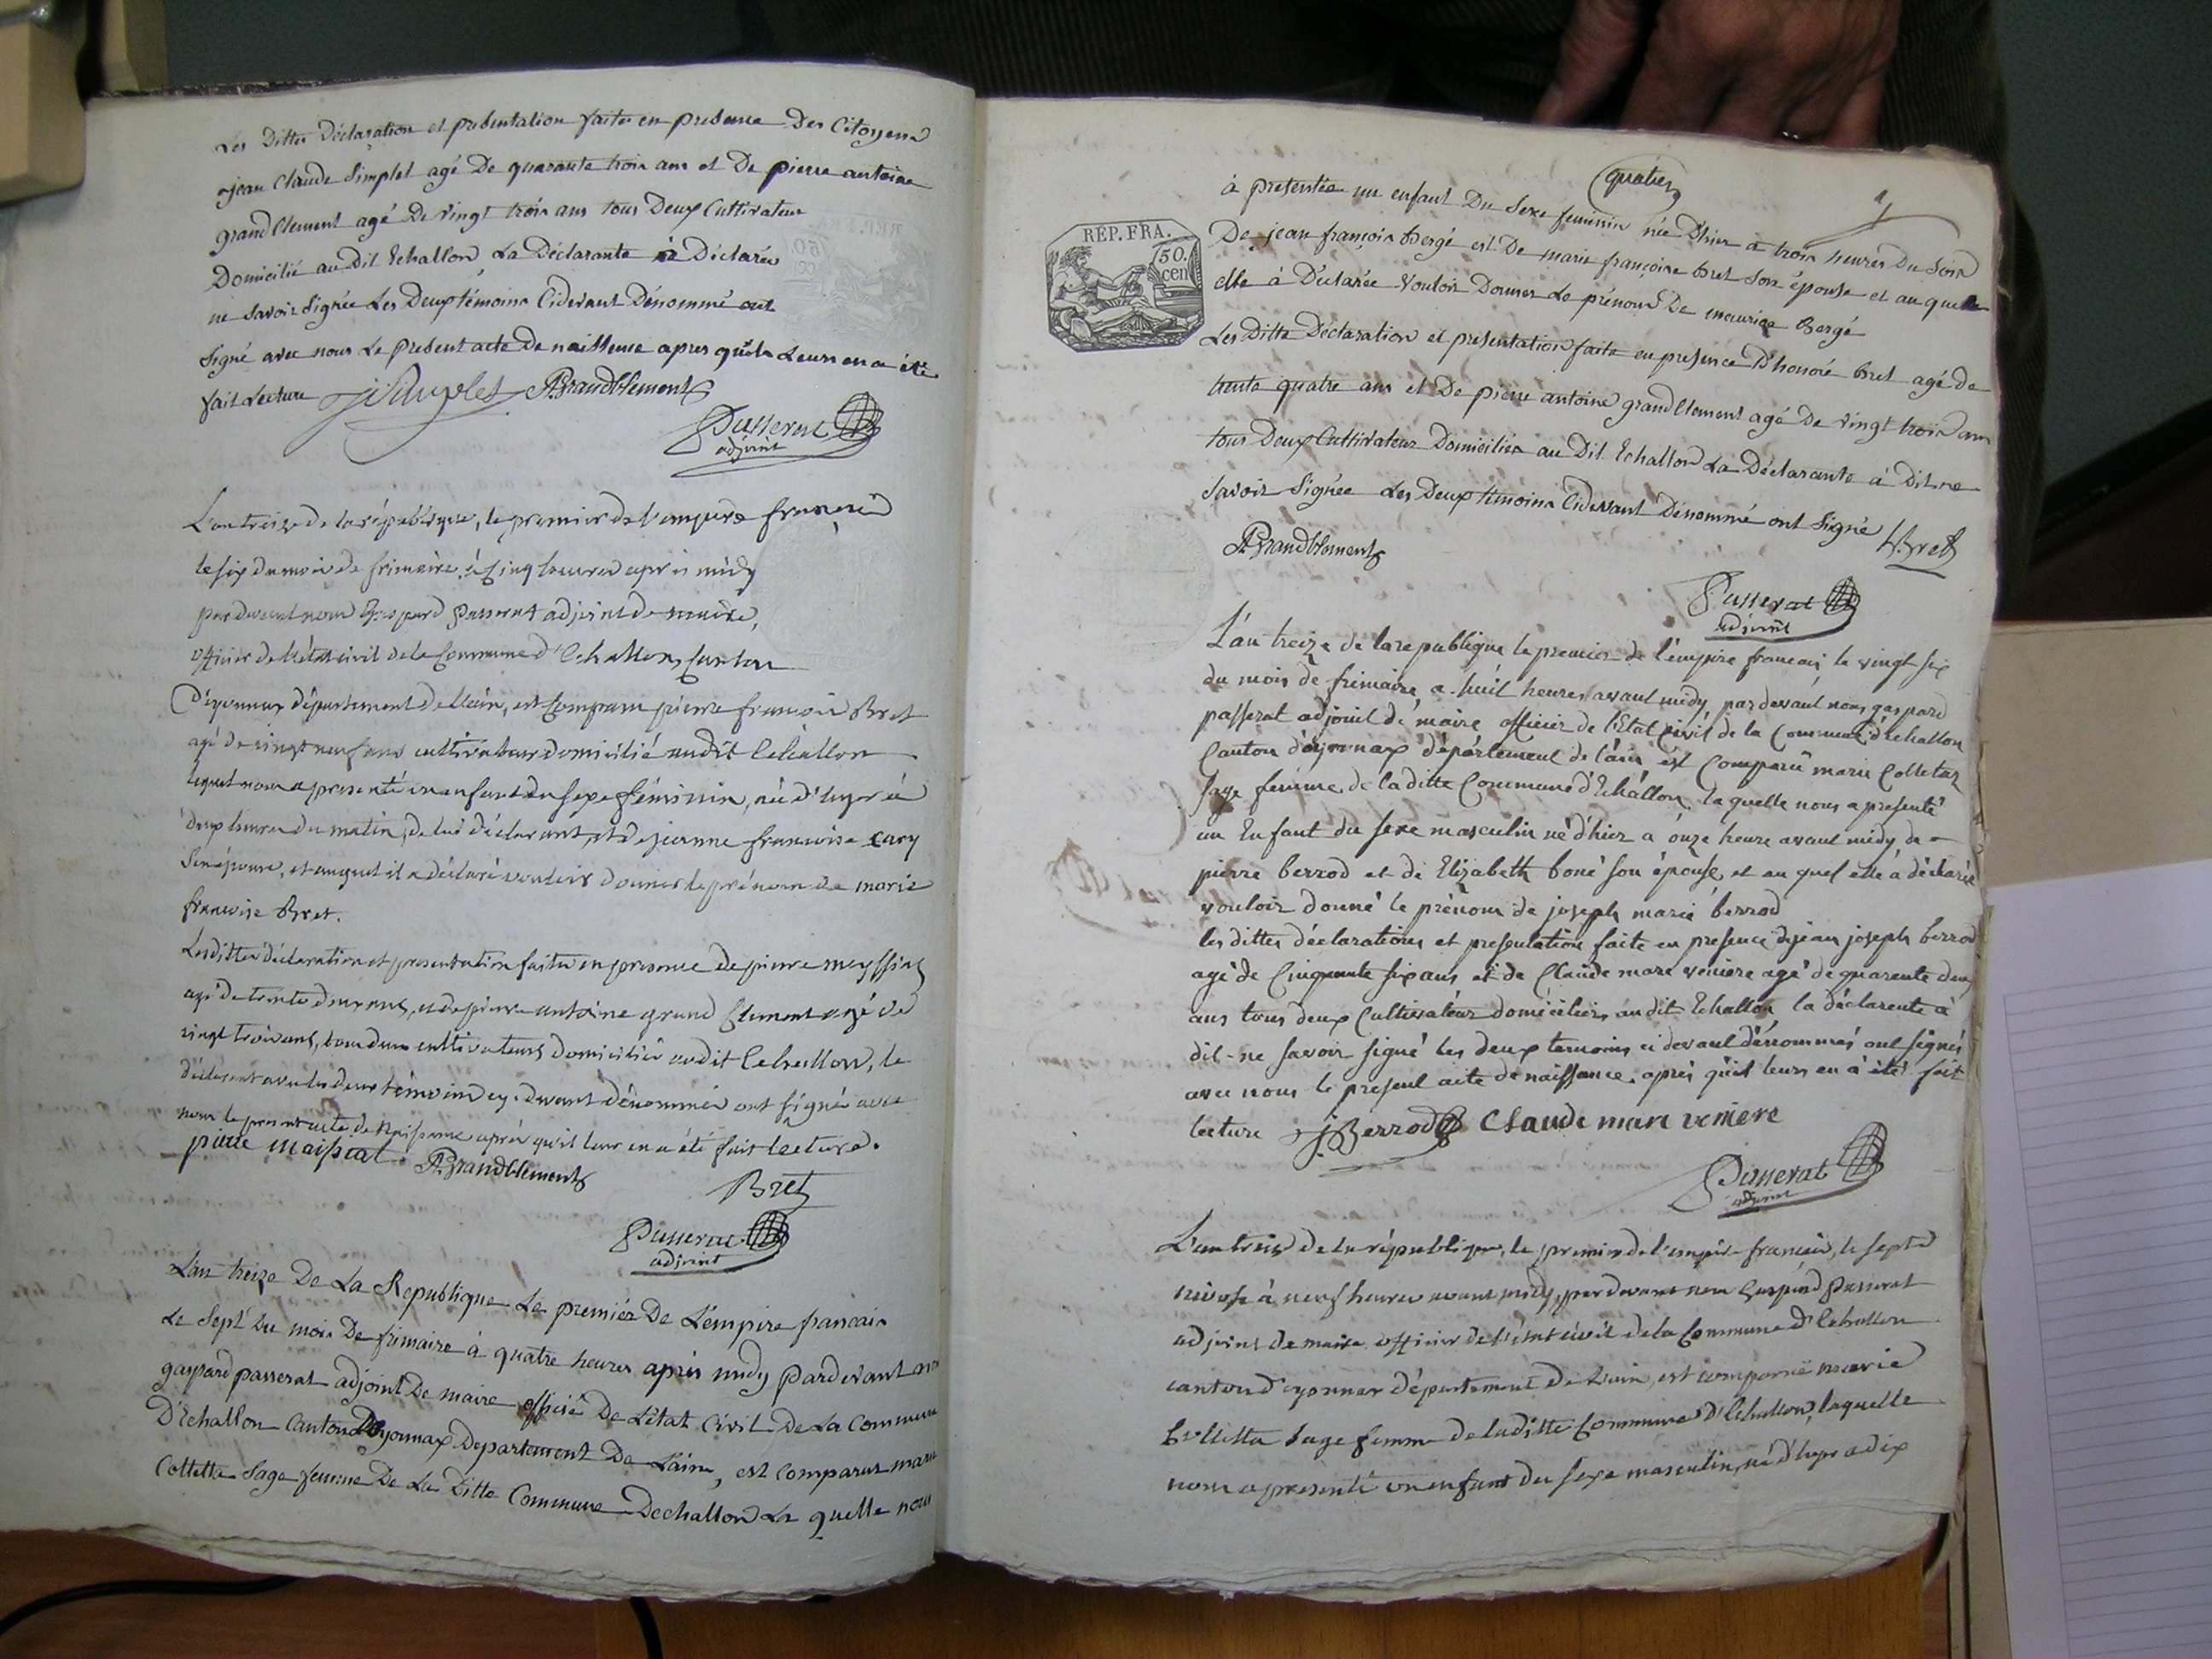 Les Dittes Déclaration et présentation faite en presence Des Citoyens
jean Claude Simplet agé De quarante trois ans et De pierre antoine
grandClement agé De vingt trois ans tous Deux Cultivateur
Domicilié au Dit Echallon La Déclarante à Déclarée
ne Savoir Signée Les Deux témoins Cidevant Dénommé ont
Signé avec nous Le present acte De naissance apres qu'il Leurs en a été
fait Lecture
PAgrandClement
Passerat
adjoint
L'an treize de la république, le premier de l'empire français
le six du mois de frimaire, à cinq heures après midy
pardevant nous Gaspard Passerat adjoint de maire,
officier de l'état civil de la Commune d'Echallon, Canton
D'oyonnax département de l'ain, est Comparu pierre françois Bret
agé de vingt neuf ans cultivateur domicilié audit Echallon
lequel nous a presenté un enfant du sexe féminin, née d'hyer à
deux heures du matin, de lui déclarant, et de jeanne francoise cary
son épouse, et auquel il a déclaré vouloir donner le prénom de marie
francoise Bret.
Lesdittes déclaration et presentation faites en presence de pierre meyssiat
agé de trente deux ans, et de pierre antoine grand Clement agé de
vingt trois ans, tous deux cultivateurs domicilié audit Echallon, le
déclarant avec les deux témoins cy-devant dénommés ont signé avec
nous le present acte de naissance après qu'il leur en a été fait lecture.
pierre maissiat PAgrandClement
Bret
Passerat
adjoint
L'an treize De La Republique Le premier De L'empire francais
Le Sept Du mois De frimaire à quatre heures après midy Pardevant nous
gaspard passerat adjoint De maire officié De L'état Civil De La Commune
D'Echallon Canton Doyonnax Departement De Lain, est Comparut marie
Colletta Sage femme De La Ditte Commune Dechallon La quelle nous
quatre
à presentée un enfant Du Sexe feminin née D'hier a trois heures Du Soir
REP. FRA.
50.
cen
De jean françois Bergé est De marie françoise Bret Son épouse et au quelle
elle à Déclarée Vouloir Donner Le prénom De maurize Bergé
Les Ditte Déclaration et présentation faite en presence D'honoré Bret agé de
trente quatre ans et De pierre antoine grandClement agé De vingt trois ans
tous Deux Cultivateur Domiciliés au Dit Echallon La Déclarante à Dit ne
Savoir Signée Les Deux temoins Cidevant Dénommé ont Signé
HBret
PAgrandClement
Passerat
adjoint
L'an treize de la republique le premier de l'empire francais, le vingt six
du mois de frimaire, a huit heures avant midy, pardevant nous gaspard
passerat adjoint de maire officier de l'Etat Civil de la Commune d'Echallon
Canton d'oyonnax département de l'ain est Comparu marie Colletaz
sage femme de la ditte Commune d'Echallon, la quelle nous a presenté
un Enfant du sexe masculin né d'hier a onze heure avant midy de
pierre berrod et de Elizabeth boné son épouse, et au quel elle a déclaré
vouloir donné le prénom de joseph marie berrod
les dittes déclarations et presentation faite en presence de jean joseph berrod
agé de Cinquante six ans et de Claude marc veniere agé de quarante deux
ans tous deux Cultivateur domiciliers audit Echallon la déclarente à
dit ne savoir signé les deux temoins cidevant dénommés ont signés
avec nous le present acte de naissance. après qu'il leurs en à été fait
lecture jjBerrod Claude marc veniere
Passerat
adjoint
L'an treize de la république, le premier de l'empire français, le sept
nivose à neuf heures avant midy, pardevant nous Gaspard Passerat
adjoint de maire officier de l'état civil de la Commune d'Echallon
canton d'oyonnax département De L'ain, est comparue marie
Colletta Sage femme de laditte Commune d'Echallon, laquelle
nous a presenté un enfant du sexe masculin, né d'hyer a dix